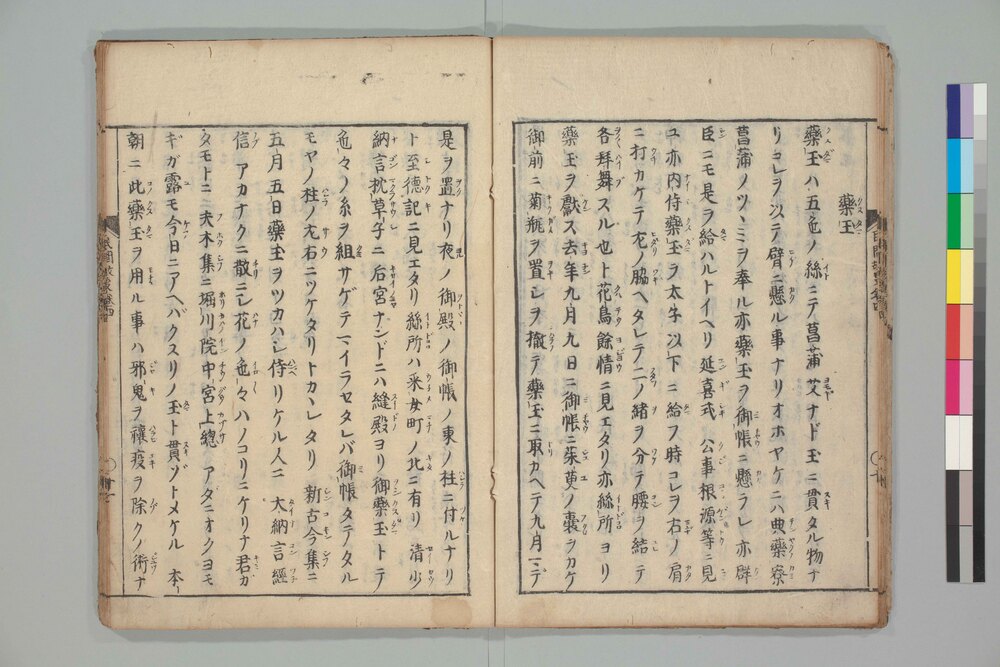 藥玉
藥玉ハ五色ノ絲ニテ菖蒲艾ナド玉ニ貫タル物ナ
リコレヲ以テ臂ニ懸ル事ナリオホヤケニハ典藥寮
菖蒲ノツヽミヲ奉ル亦藥玉ヲ御帳ニ懸ラレ亦群
臣ニモ是ヲ給ハルトイヘリ延喜式 公事根源等ニ見
ユ亦内侍藥玉ヲ太子以下ニ給フ時コレヲ右ノ肩
ニ打カケテ左ノ脇ヘタレテ二ノ緒ヲ分テ腰ヲ結テ
各拜舞スル也ト花鳥餘情ニ見エタリ亦絲所ヨリ
藥玉ヲ獻ス去年九月九日ニ御帳ニ茱萸ノ嚢ヲカケ
御前ニ菊瓶ヲ置シヲ撤テ藥玉ニ取カヘテ九月マデ
是ヲ置ナリ夜ノ御殿ノ御帳ノ東ノ柱ニ付ルナリ
ト至德記ニ見エタリ絲所ハ采女町ノ北ニ有リ 清少
納言枕草子ニ后宮ナンドニハ縫殿ヨリ御藥玉トテ
色々ノ糸ヲ組サゲテマイラセタレバ御帳タテタル
モヤノ柱ノ左右ニツケタリトカヽレタリ 新古今集ニ
五月五日藥玉ヲツカハシ侍リケル人ニ 大納言經
信 アカナクニ散ニシ花ノ色々ハノコリニケリナ君ガ
タモトニ 夫木集ニ堀川院中宮上總 アタニオクヨモ
ギガ露モ今日ニアヘバクスリノ玉ト貫ソトメケル 本
朝ニ此藥玉ヲ用ル事ハ邪鬼ヲ禳疫ヲ除クノ術ナ